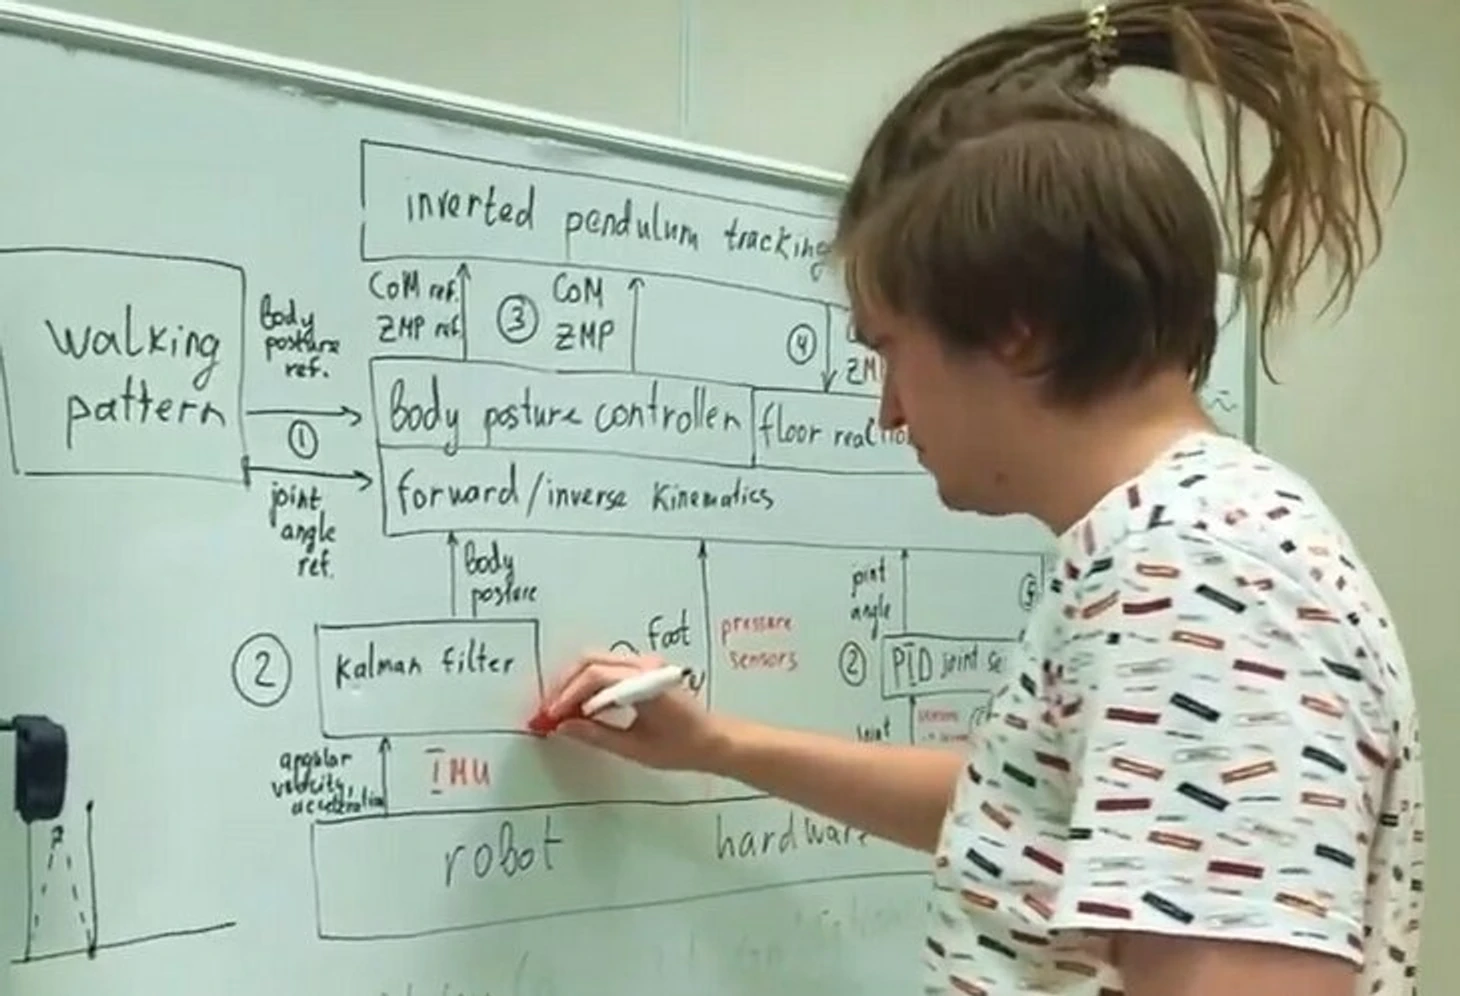 inverted pendulum tracking
CoM ref.
ZMP ref.
3
CoM
ZMP
4
walking
pattern
body
posture
ref.
1
joint
angle
ref.
Body posture controller
floor
forward/inverse kinematics
body
posture
2
Kalman filter
foot
pressure
sensors
joint
angle
5
2
PID joint
angular
velocity,
acceleration
IMU
joint
robot hardware